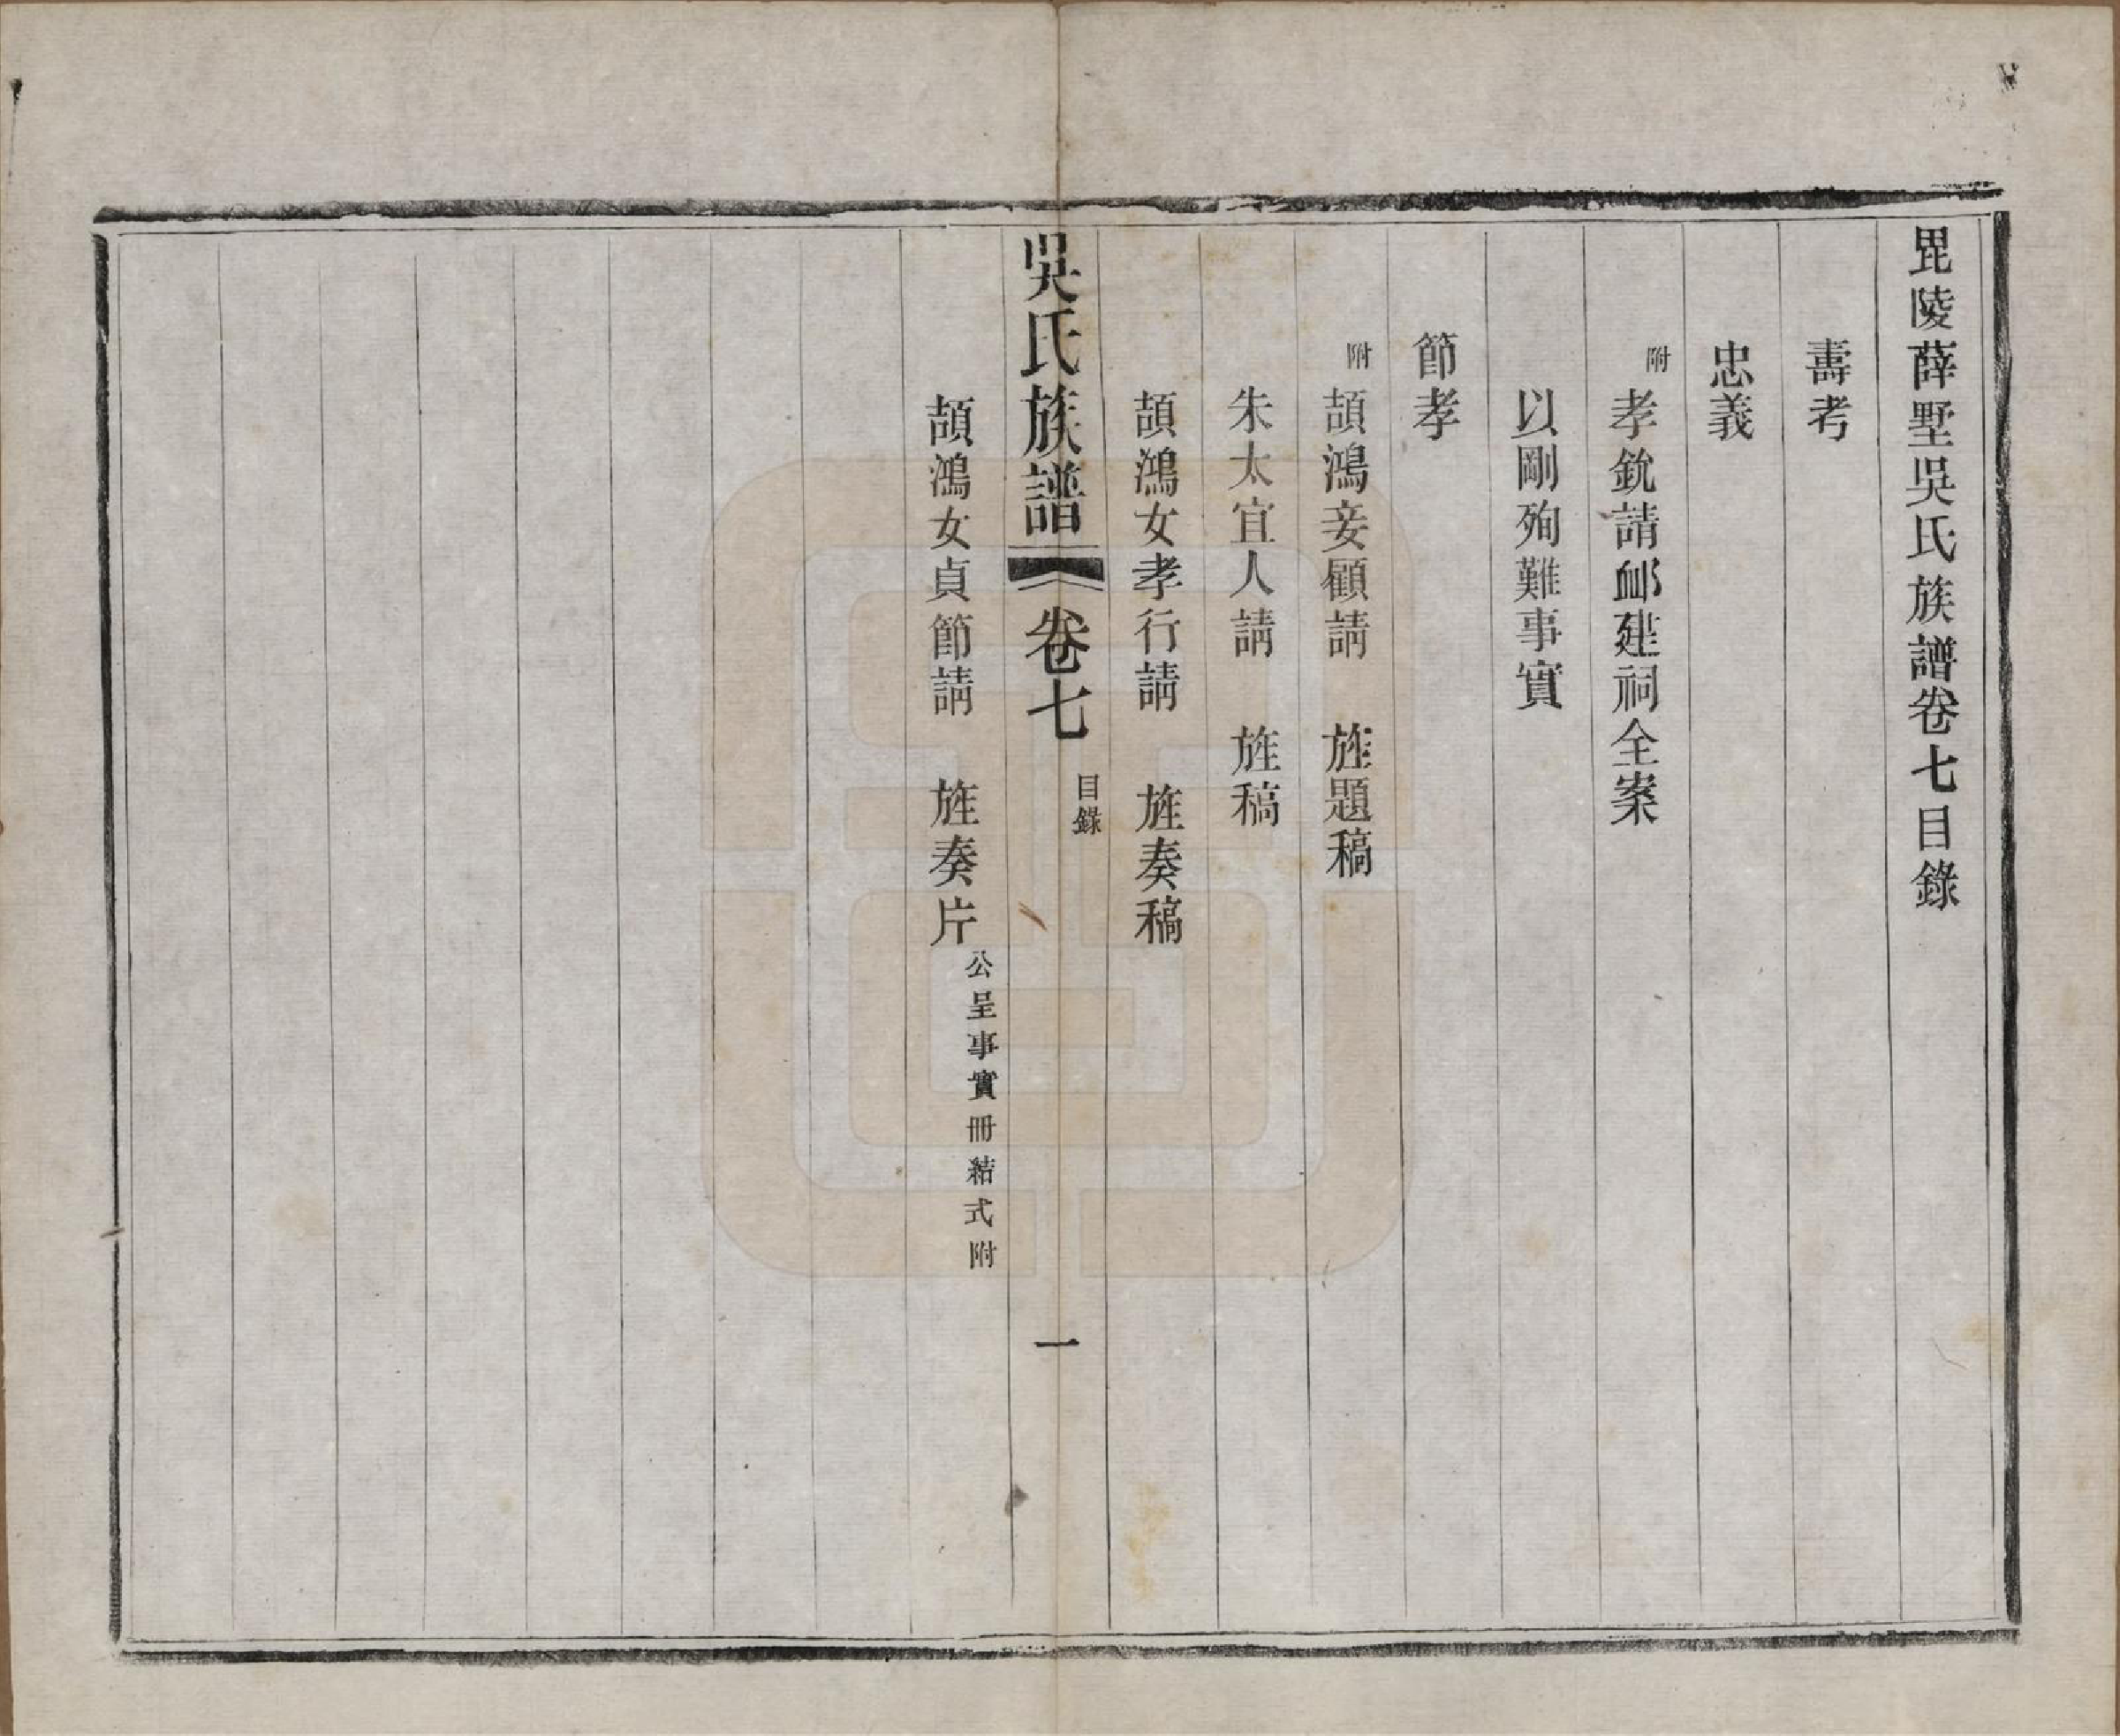 毘陵薛墅吳氏族譜卷七目錄
壽考
忠義
附孝銑請卹建祠全案
以剛殉難事實
節孝
附頡鴻妾顧請　旌題稿
朱太宜人請　旌稿
頡鴻女孝行請　旌奏稿
吳氏族譜　卷七　目錄　一
頡鴻女貞節請　旌奏片公呈事實冊結式附